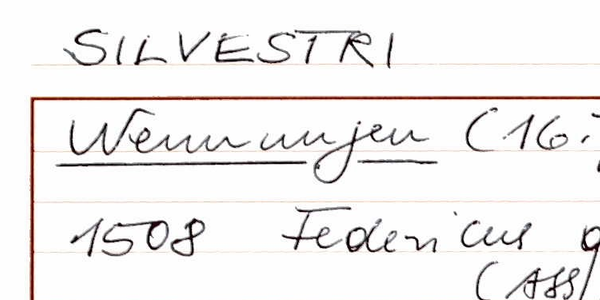 SILVESTRI
Wennungen (16
1508 Federicus
(ASS